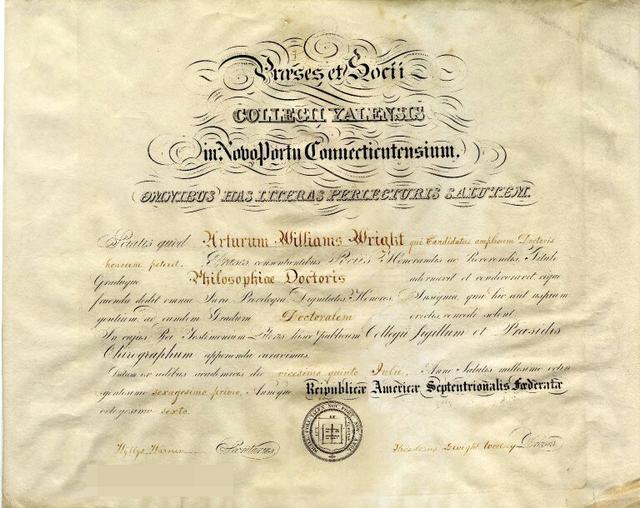 Præses et Socii
COLLEGII YALENSIS
in Novo Portu Connecticutensium,
OMNIBUS HAS LITERAS PERLECTURIS SALUTEM.
Sciatis quod Arturum Williams Wright qui Candidatus ampliorem Doctoris
honorem petivit, Præses consentientibus Sociis Honorandis ac Reverendis, Titulo
Graduque Philosophiæ Doctoris adornavit et condecoravit, eique
fruenda dedit omnia Jura, Privilegia, Dignitates, Honores, Insignia, quæ hic aut uspiam
gentium, ad eundem Gradum Doctoralem evectis concedi solent.
In cujus Rei Testimonium Literis hisce publicum Collegii Sigillum et Præsidis
Chirographum apponenda curavimus.
Datum ex ædibus academicis die vicesimo quinto Julii, Anno Salutis millesimo octin
gentesimo sexagesimo primo, Annoque Reipublicæ Americæ Septentrionalis Fœderatæ
octogesimo sexto.
Wyllys Warner Secretarius
Theodorus Dwight Woolsey Præses